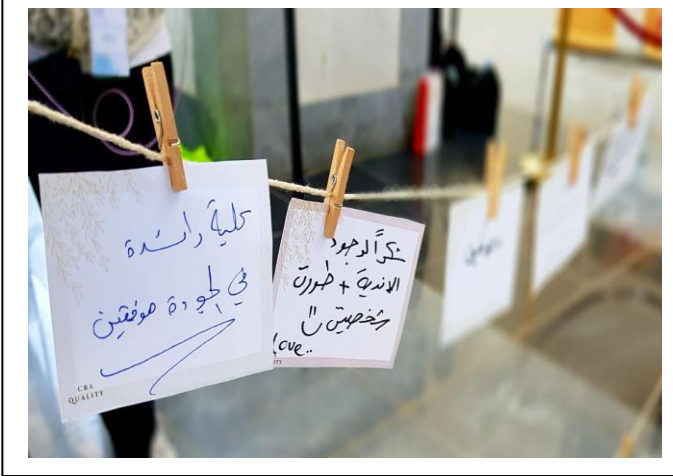 كلية رائدة
في الجودة موفقين
CBA
QUALITY
شكراً لوجود
الاندية + طورت
شخصيتي
Love..